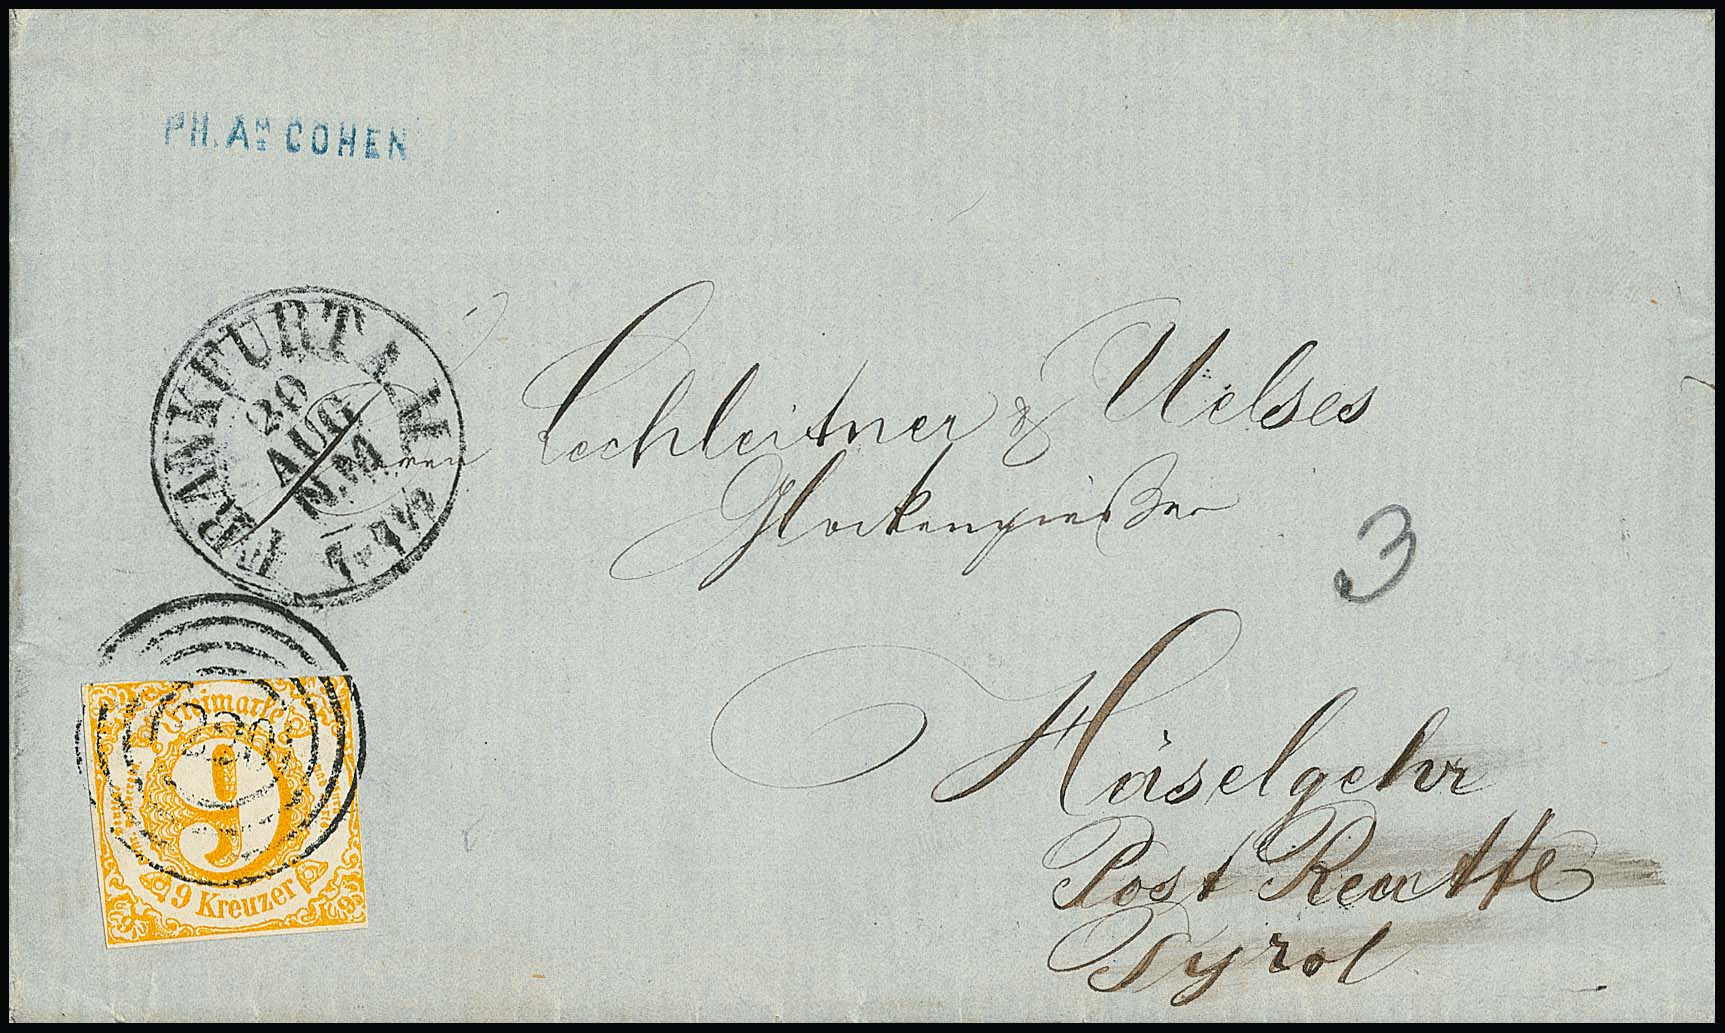 PH. Am COHEN
FRANKFURT A. M.
20
AUG
N.M
Lechleitner & Uelses
Glockengießer
3
Häselgehr
Post Reutte
Tyrol
Freimarke
9
9 Kreuzer